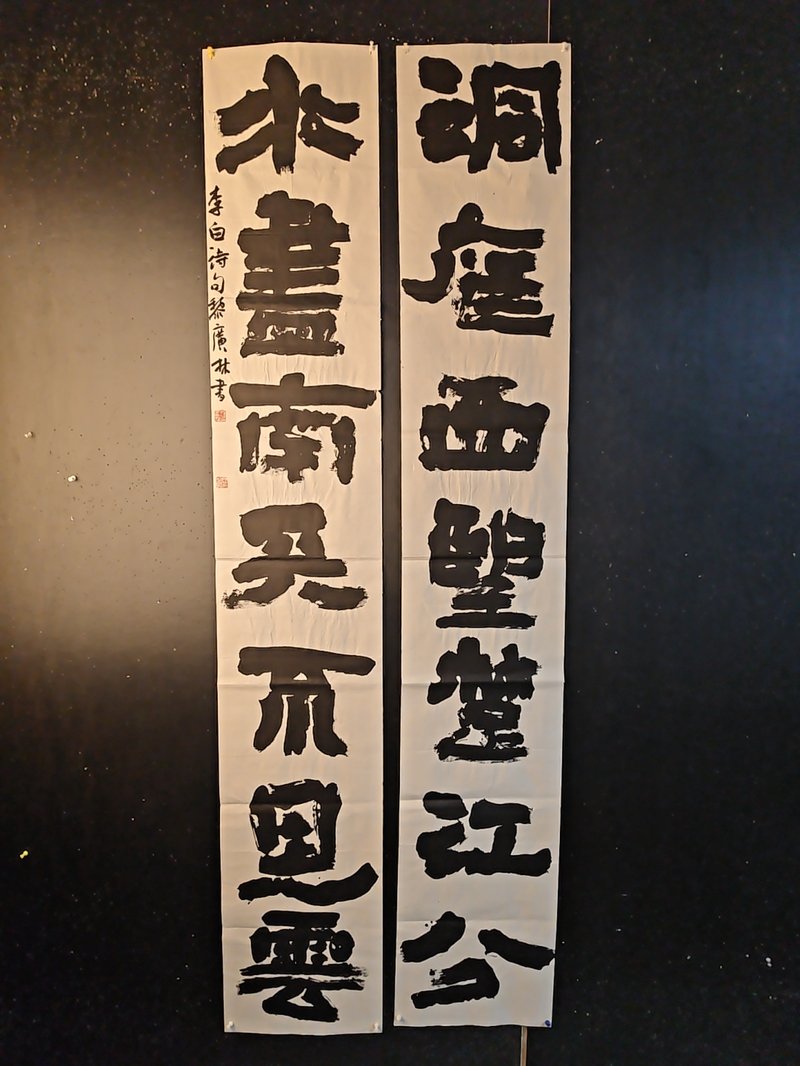 洞庭西望楚江分
水盡南天不見雲
李白诗句黎廣林书